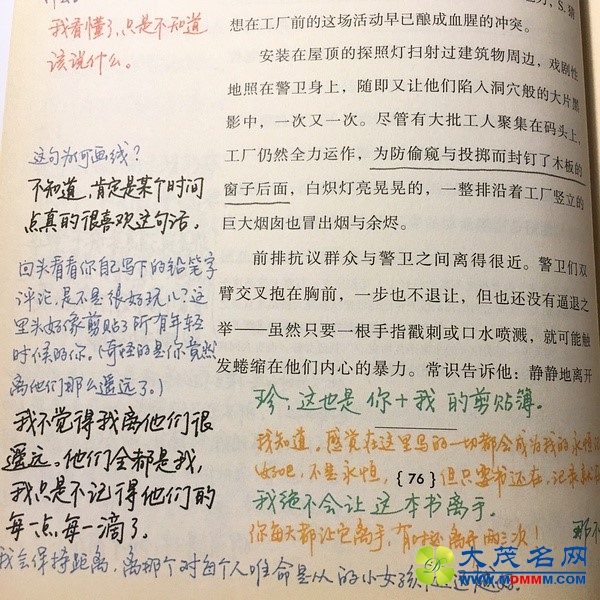 我看懂了,只是不知道
该说什么。
想在工厂前的这场活动早已酿成血腥的冲突。
安装在屋顶的探照灯扫射过建筑物周边,戏剧性
地照在警卫身上,随即又让他们陷入洞穴般的大片黑
影中,一次又一次。尽管有大批工人聚集在码头上,
工厂仍然全力运作,为防偷窥与投掷而封钉了木板的
窗子后面,白炽灯亮晃晃的,一整排沿着工厂竖立的
巨大烟囱也冒出烟与余烬。
前排抗议群众与警卫之间离得很近。警卫们双
臂交叉抱在胸前,一步也不退让,但也还没有逼退之
举——虽然只要一根手指戳刺或口水喷溅,就可能触
发蜷缩在他们内心的暴力。常识告诉他:静静地离开
这句为何画线?
不知道,肯定是某个时间
点真的很喜欢这句话。
回头看看你自己写下的铅笔字
评论,是不是很好玩儿?这
里头好像剪贴了所有年轻
时候的你。(奇怪的是你竟然
离他们那么遥远了。)
我不觉得我离他们很
遥远。他们全都是我,
我只是不记得他们的
每一点每一滴了。
珍,这也是你+我的剪贴簿。
我知道。感觉在这里写的一切都会成为我的永恒
好吧,不是永恒,但只要书还在,记录就
{76}
我绝不会让这本书离手。
你每天都让它离手,有时还离手两三次!
我会保持距离,离那个对每个人唯命是从的小女孩
大茂名网
MDMMM.com